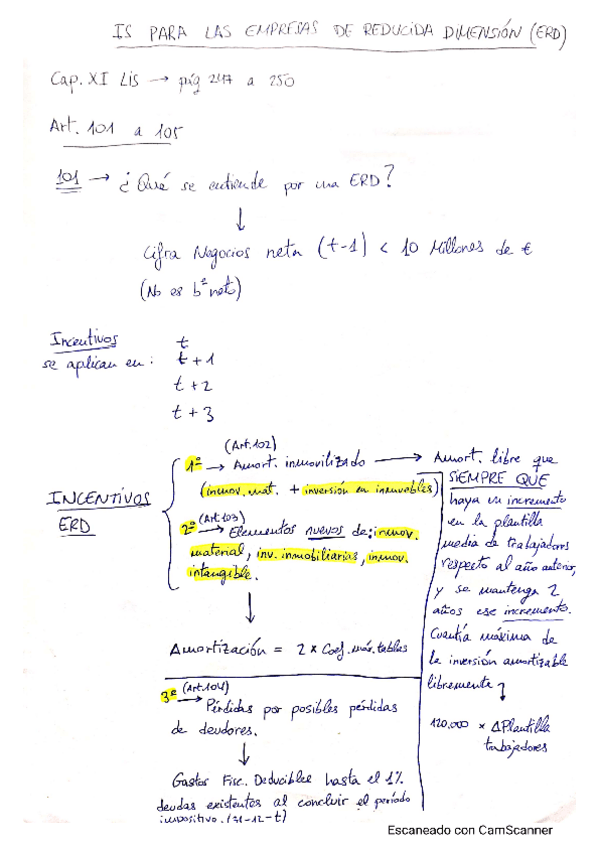 IS PARA LAS EMPRESAS DE REDUCIDA DIMENSIÓN (ERD)
Cap. XI LIS → pág 247 a 250
Art. 101 a 105
101 → ¿Qué se entiende por una ERD?
↓
Cifra Negocios neta (t-1) < 10 Millones de €
(No es bº neto)
Incentivos
se aplican en:
t
t + 1
t + 2
t + 3
INCENTIVOS
ERD
(Art. 102)
1º → Amort. inmovilizado →
(inmov. mat. + inversión en inmuebles)
2º (Art 103) → Elementos nuevos de: inmov.
material, inv. inmobiliarias, inmov.
intangible.
↓
Amortización = 2 x Coef. máx. tablas
3º (Art. 104) → Pérdidas por posibles pérdidas
de deudores.
↓
Gastos Fisc. Deducibles hasta el 1%
deudas existentes al concluir el período
impositivo. (31-12-t)
Amort. libre que
SIEMPRE QUE
haya un incremento
en la plantilla
media de trabajadores
respecto al año anterior,
y se mantenga 2
años ese incremento.
Cuantía máxima de
la inversión amortizable
libremente
120.000 x ΔPlantilla
trabajadores
Escaneado con CamScanner